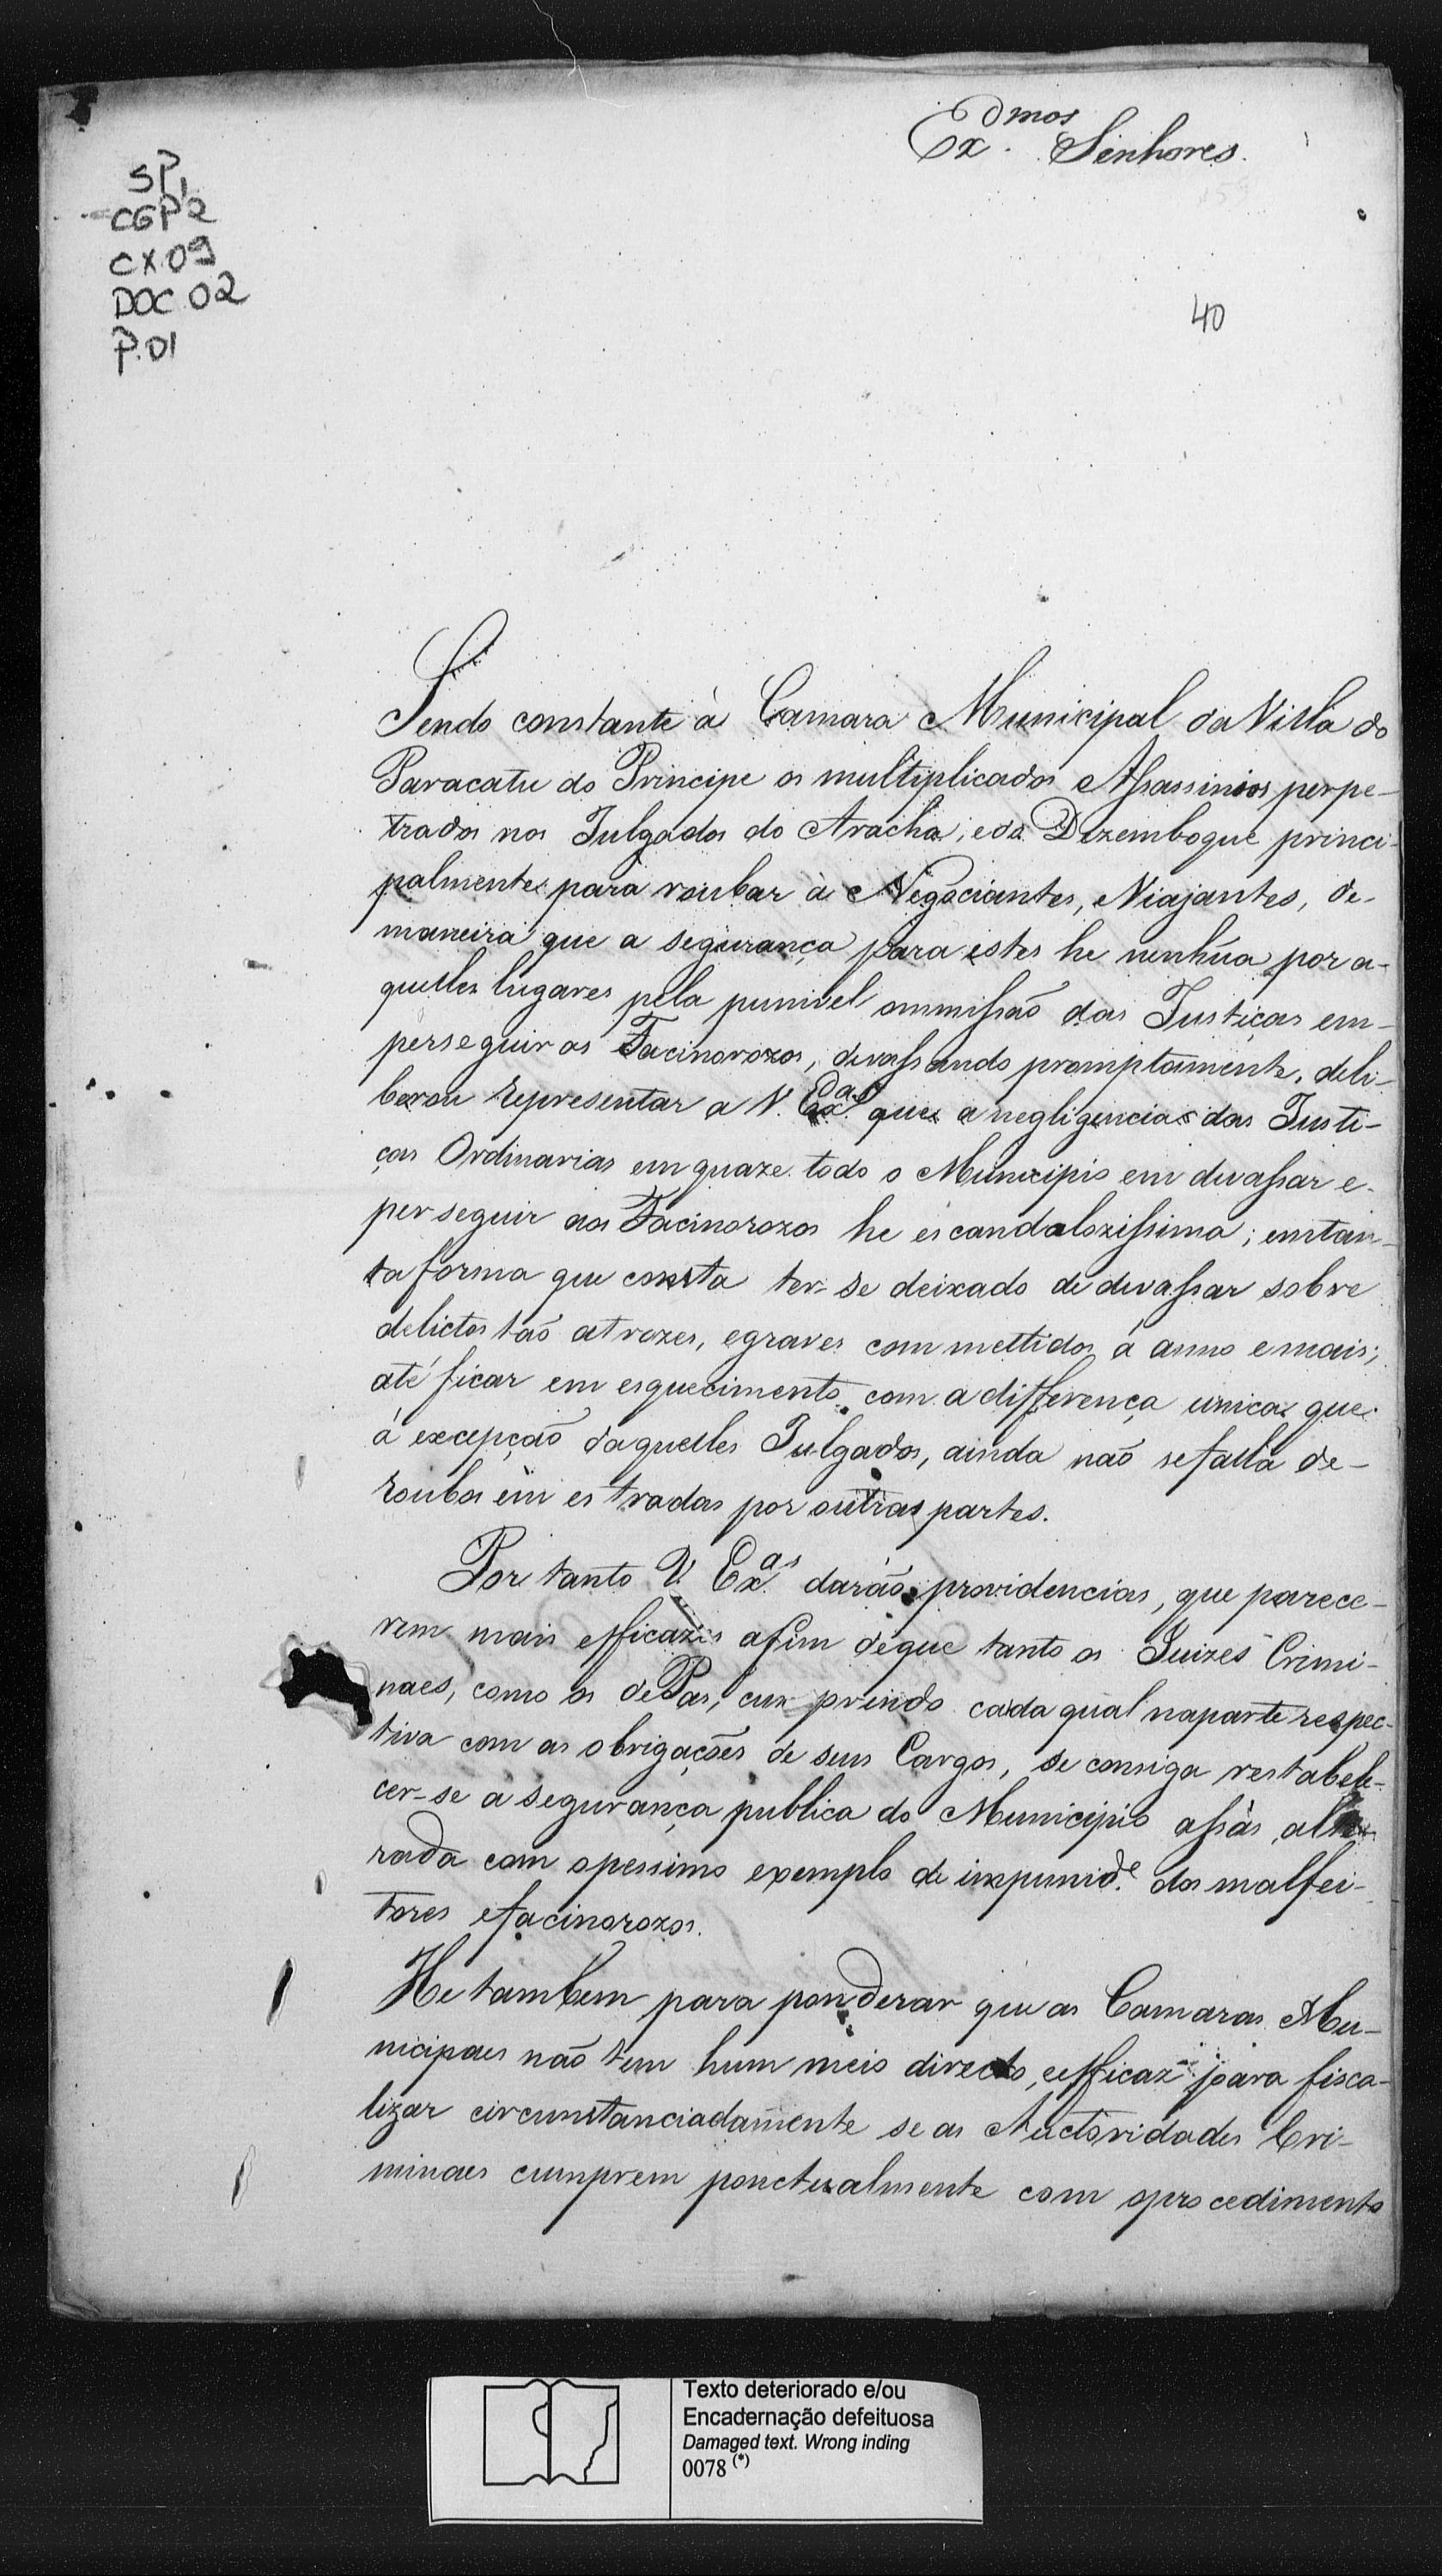 Ex.mos Senhores.
SP,
CGP2
CX.09
DOC.02
P.01
40
Sendo constante à Camara Municipal da Villa do
Paracatu do Principe os multiplicados Assassinios perpe-
trados nos Julgados do Aracha, e do Dezemboque princi-
palmente para roubar à Negociantes, Viajantes, de-
maneira que a segurança para estes he nenhũa por a-
quelles lugares pela punivel ommissão das Justiças em-
perseguir os Facinorozos, devassando promptamente, deli-
berou representar a V. Ex.as que a negligencia das Justi-
ças Ordinarias em quaze todo o Municipio em devassar e-
perseguir aos Facinorozos he escandalozissima; emtan-
ta forma que consta ter-se deixado de devassar sobre
delictos taõ atrozes, egraves commettidos á anno emais;
até ficar em esquecimento com a differença unica que
á excepçaõ daquelles Julgados, ainda naõ sefalla de-
roubos em estradas por outras partes.
Por tanto V. Ex.as daráõ providencias, que parece-
rem mais efficazes afim deque tanto os Juizes Crimi-
naes, como os dePas, cumprindo cada qual naparte respec-
tiva com as obrigações de seus Cargos, se consiga restabele-
cer-se a segurança publica do Municipio assás alte-
rada com opessimo exemplo de impunid.e dos malfei-
tores efacinorozos.
He tambem para ponderar que as Camaras Mu-
nicipaes naõ tem hum meio directo, eefficaz para fisca-
lizar circunstanciadamente se as Auctoridades Cri-
minaes cumprem ponctualmente com oprocedimento
Texto deteriorado e/ou
Encadernação defeituosa
Damaged text. Wrong inding
0078 (*)